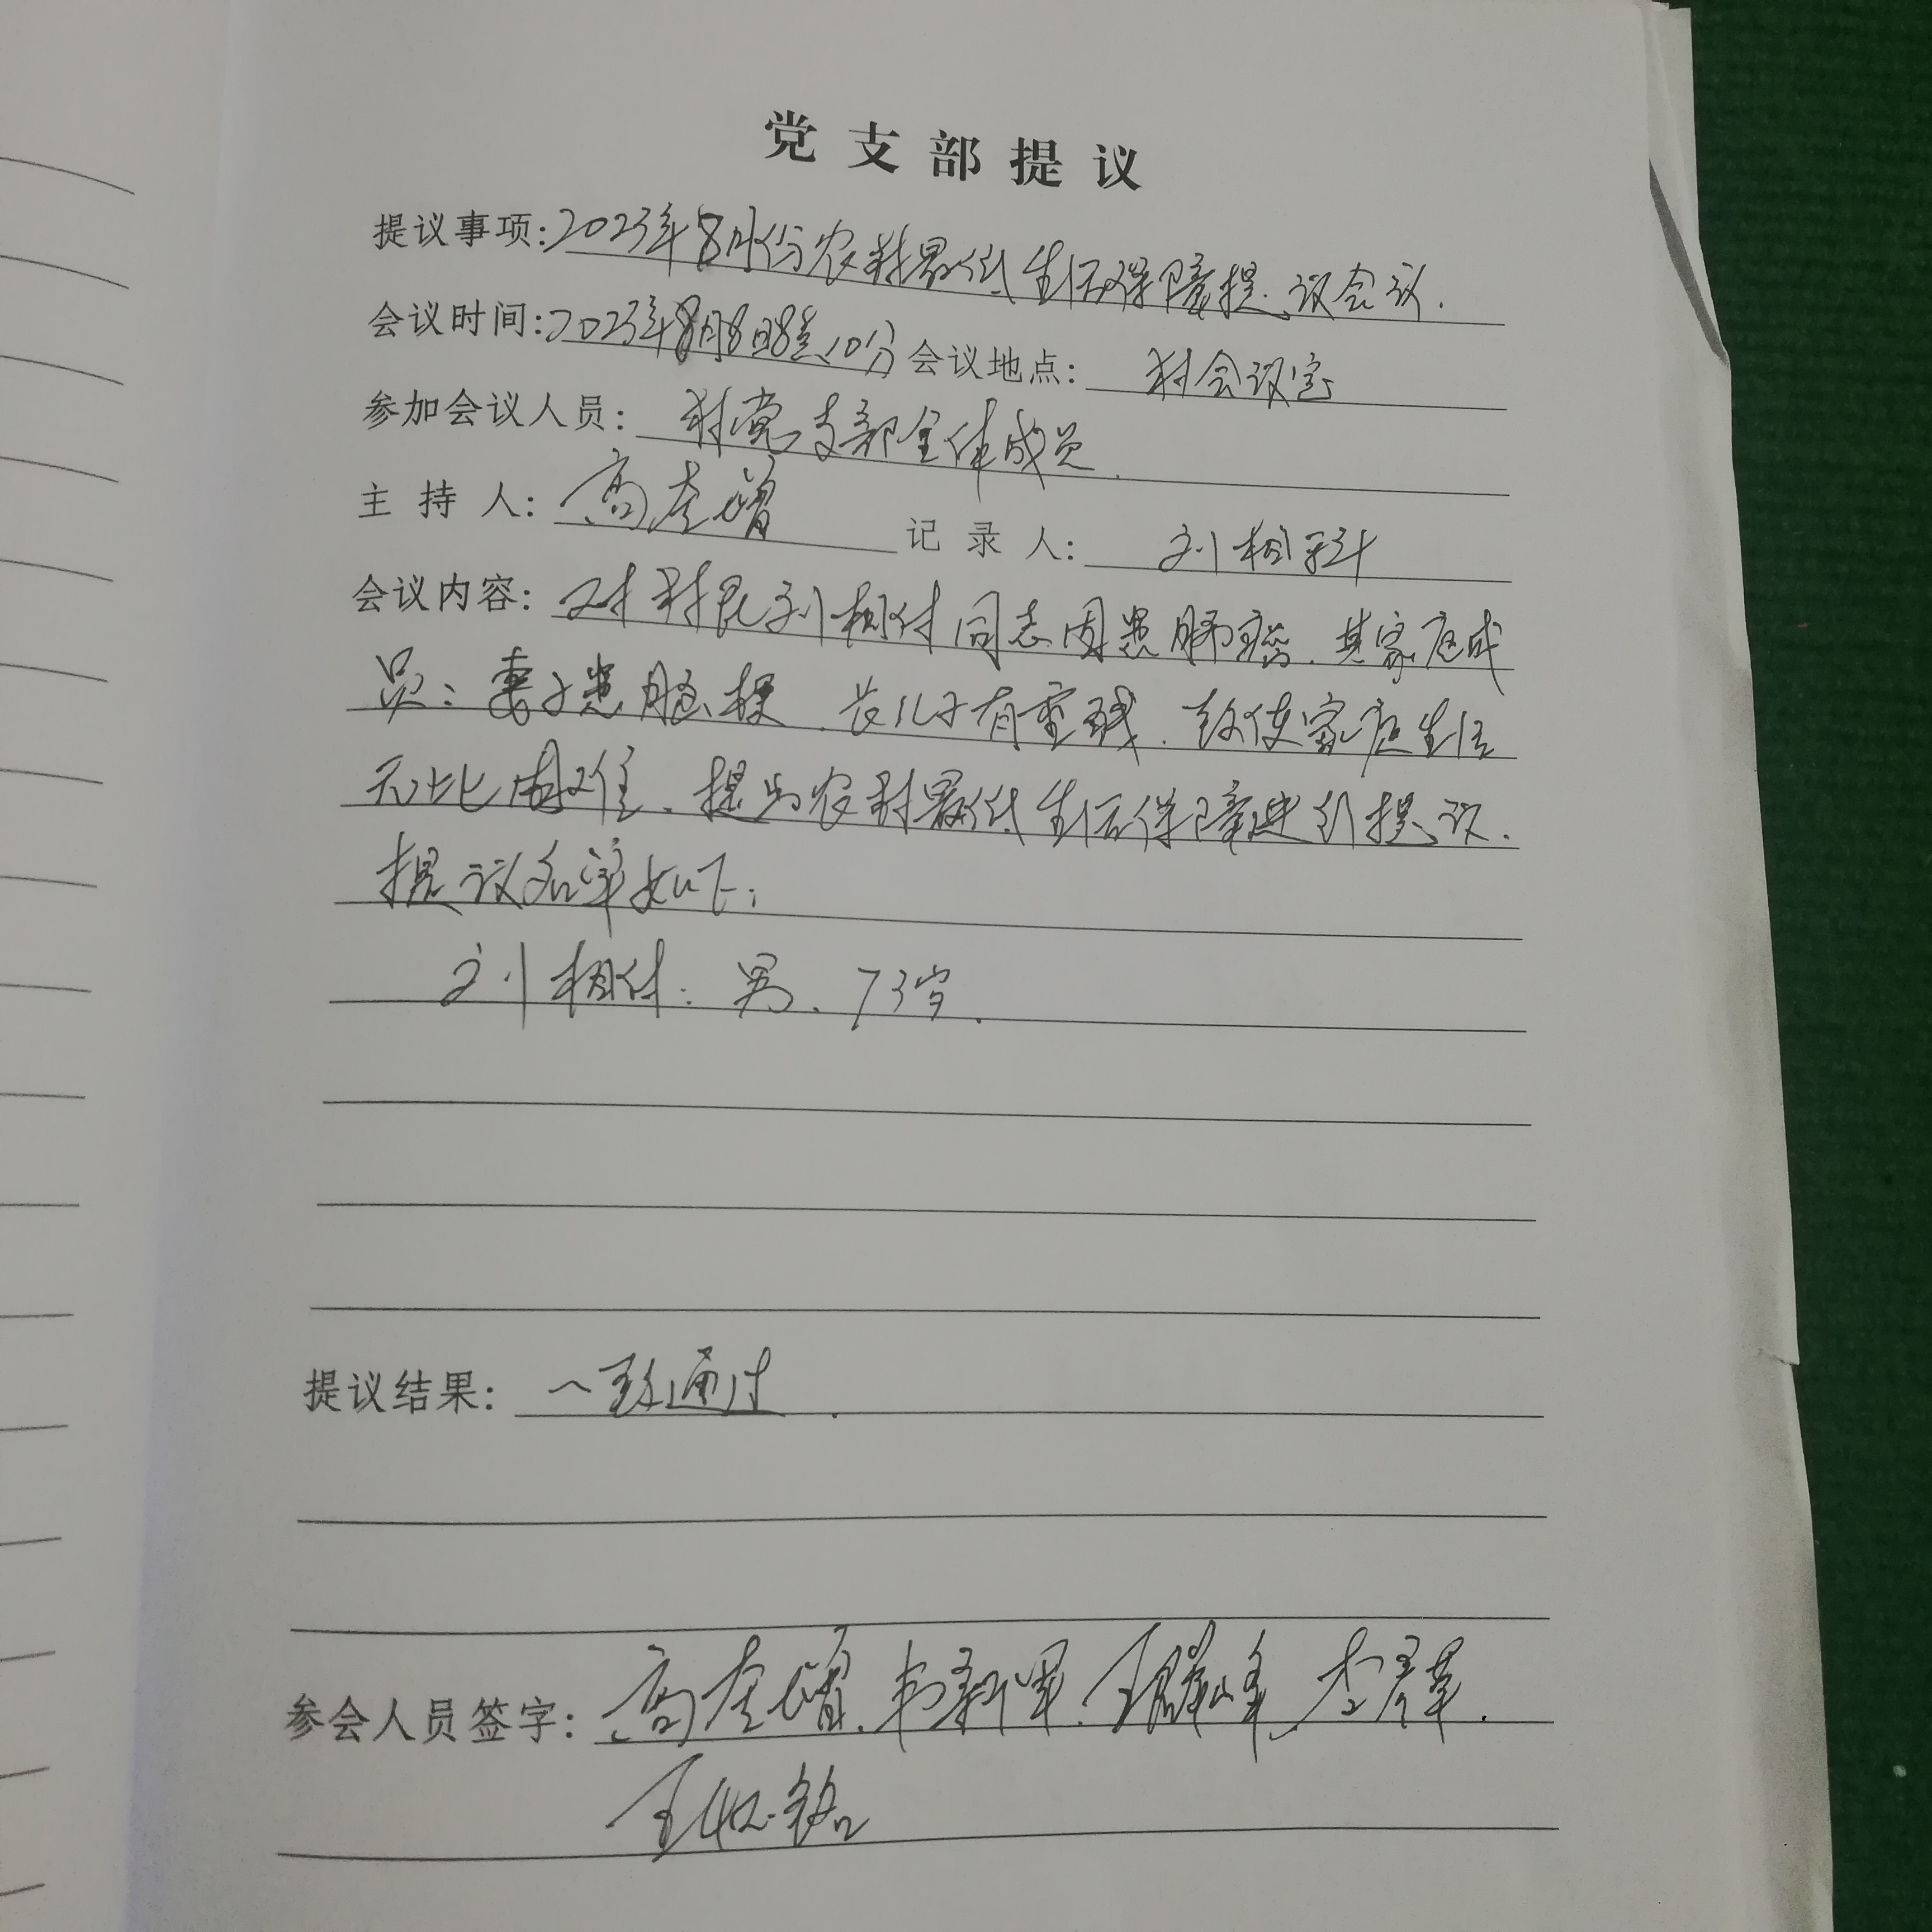 党支部提议
提议事项:2023年8月份农村最低生活保障提议会议.
会议时间:2023年8月8日8点10分 会议地点: 村会议室
参加会议人员: 村党支部全体成员.
主持人: 高 记录人: 刘相科
会议内容: 对村民刘相付同志因患肺癌.其家庭成
员:妻子患脑梗.长儿子有重残.致使家庭生活
无比困难.提为农村最低生活保障进行提议.
提议名单如下:
刘相付.男.73岁.
提议结果: 一致通过.
参会人员签字: 高 韦新军. 王 峰 李
王 铭